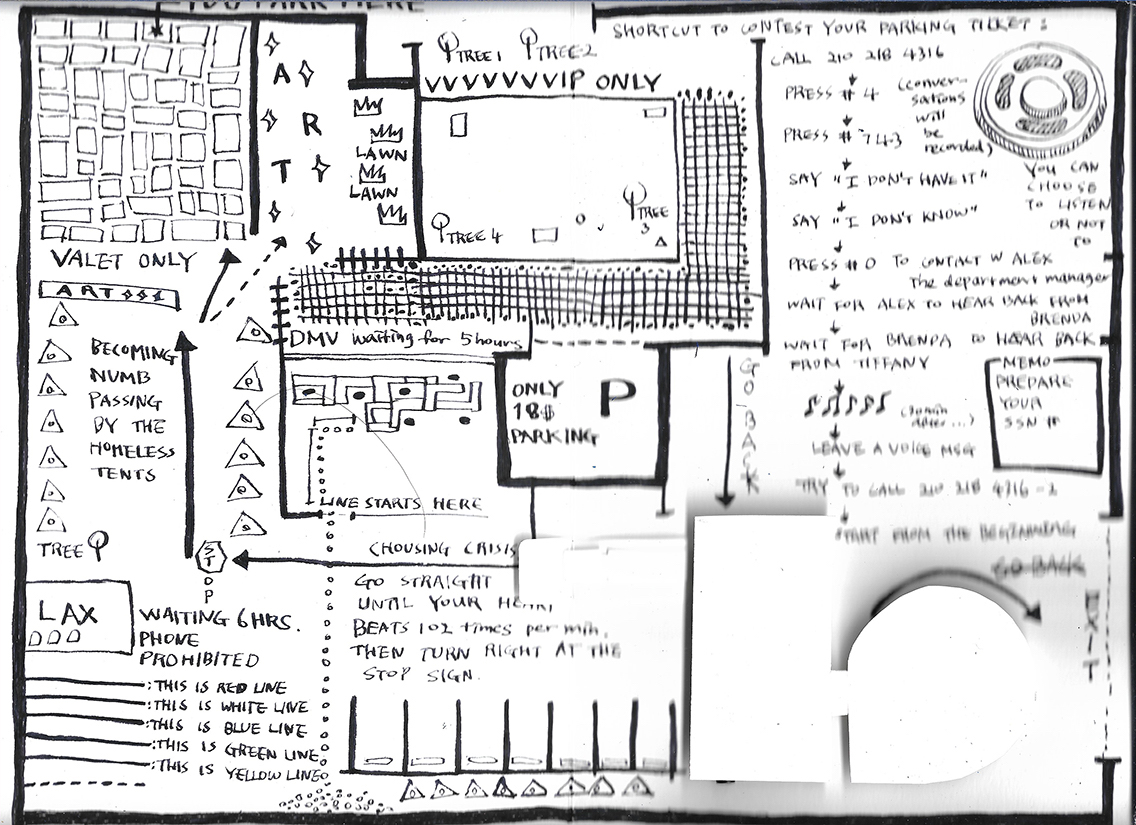 YOU PARK HERE
TREE 1
TREE 2
VVVVVVVVIP ONLY
A
R
T
LAWN
LAWN
TREE 3
TREE 4
VALET ONLY
ART $$$
BECOMING
NUMB
PASSING
BY THE
HOMELESS
TENTS
TREE
STOP
DMV waiting for 5 hours
ONLY
18$
PARKING
P
LINE STARTS HERE
GO BACK
SHORTCUT TO CONTEST YOUR PARKING TICKET:
CALL 210 218 4316
PRESS # 4
(conver-
sations
will
be
recorded)
PRESS # 743
SAY "I DON'T HAVE IT"
SAY "I DON'T KNOW"
YOU CAN
CHOOSE
TO LISTEN
OR NOT
TO
PRESS # 0 TO CONTACT W ALEX
The department manager
WAIT FOR ALEX TO HEAR BACK FROM
BRENDA
WAIT FOR BRENDA TO HEAR BACK
FROM TIFFANY
LEAVE A VOICE MSG
TRY TO CALL 210 218 4316 -2
START FROM THE BEGINNING
GO BACK
MEMO
PREPARE
YOUR
SSN #
EXIT
CHOUSING CRISIS
GO STRAIGHT
UNTIL YOUR HEART
BEATS 102 times per min,
THEN TURN RIGHT AT THE
STOP SIGN.
LAX
WAITING 6HRS.
PHONE
PROHIBITED
:THIS IS RED LINE
:THIS IS WHITE LINE
:THIS IS BLUE LINE
:THIS IS GREEN LINE
:THIS IS YELLOW LINE